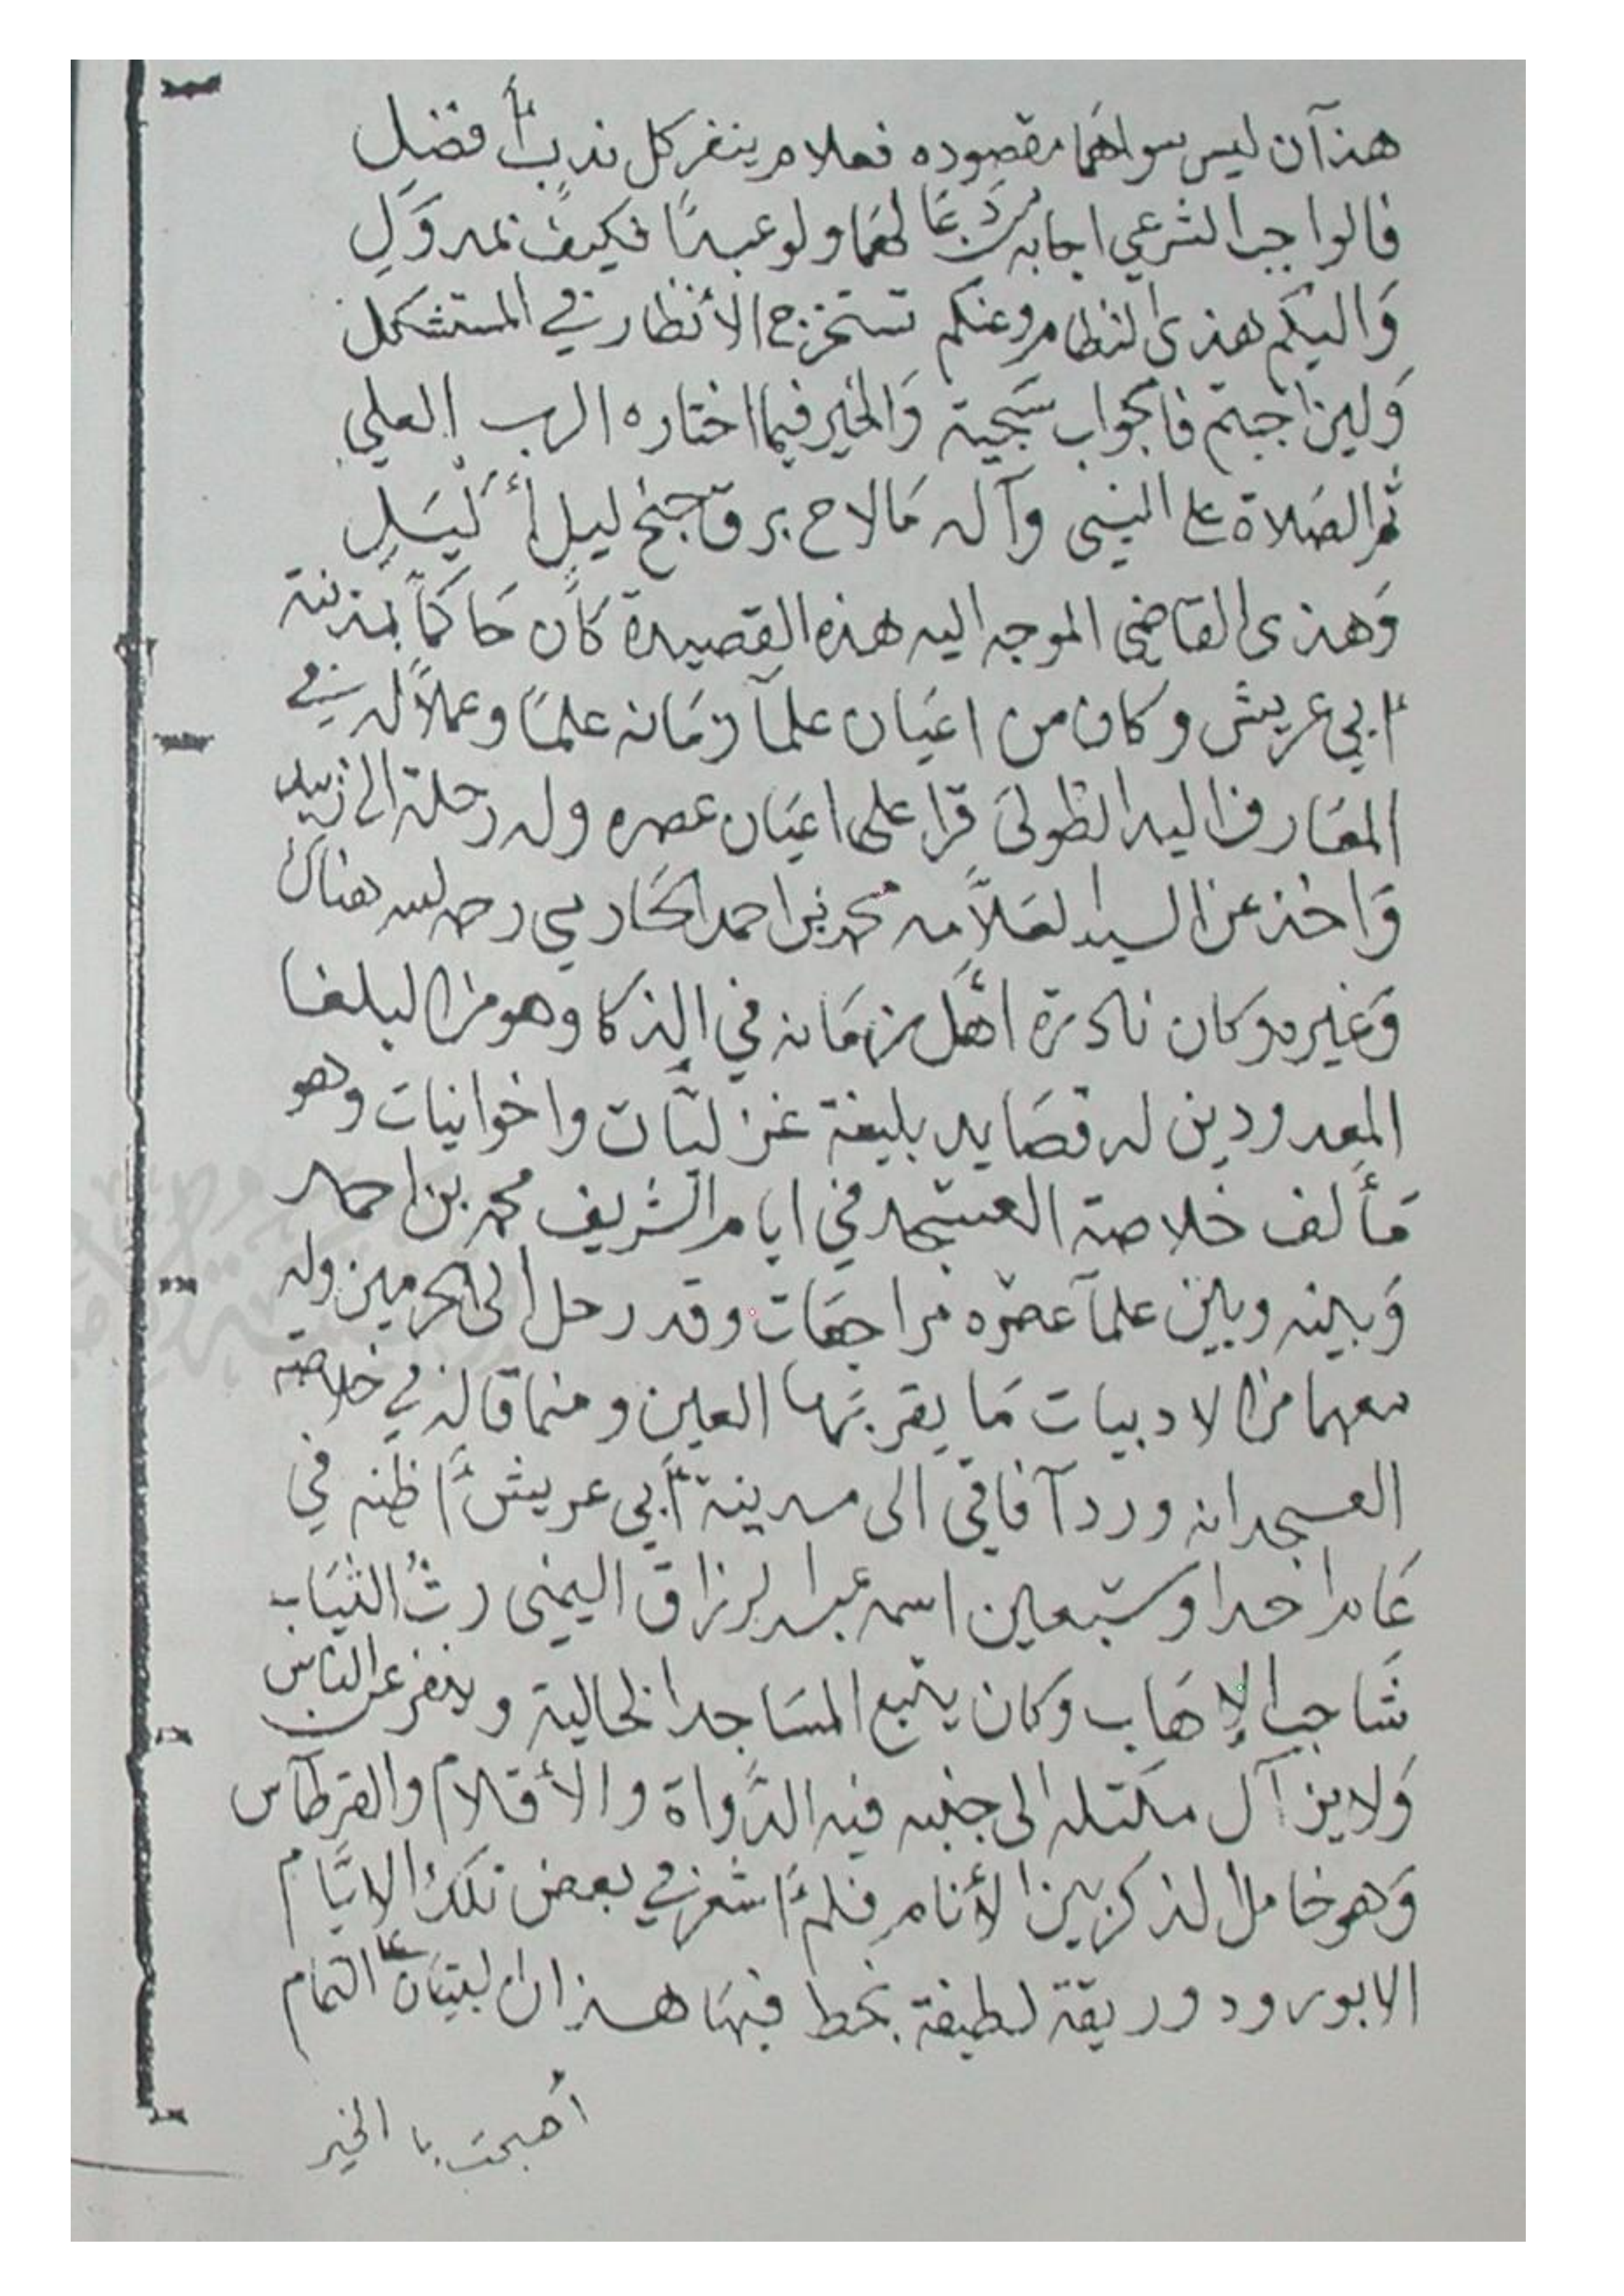 هذآن ليس سواهما مقصوده فعلام ينفر كل ندب أفضل
فالواجب الشرعي اجابة من دعا لهما ولو عبدًا فكيف بمدوَل
وَاليكم هذى النظام وعنكم تستخرج الأنظار في المستشكل
وَلين اجبتم فالجواب سَجية وَالخير فيما اختاره الرب العلي
ثم الصَلاة على النبي وآله مَا لاح برق جنح ليلٍ أَلْيَلِ
وَهذى القاضي الموجه اليه هذه القصيدة كان حَاكمًا بمدينة
أبي عريش وكان من اعيَان علمآ زمَانه علمًا وعملاً له في
المعَارف اليد الطولىَ قرا على اعيَان عصره وله رحلة الى زبيد
وَاخذ عن السيد العَلاَّمه محمد بن احمد الحَازمي رحمه الله هناك
وَغيره وكان نادرة اهل زمَانه في الذكا وهو من البلغا
المعدودين له قصَايد بليغة غزليَّات واخوانيات وهو
مَألف خلاصة العسجد في ايام الشريف محمد بن احمد
وَبينه وبين علمآ عصره مراجعَات وقد رحل الى الحرمين وله
معهما من الادبيات مَا يقر بهَا العين ومما قاله في خلاصة
العسجد انه ورد آفاقي الى مدينة أبي عريش أَظنه في
عَام احدا وسَبعين اسمه عبد الرزاق اليمني رثُ الثيَاب
شَاحب الإهَاب وكان يتبع المسَاجد الخالية وينفر عن الناس
وَلا يزآل مكتله الى جنبه فيه الدَّواة والأقلام والقرطَاس
وَهو خامل الذكر بين الأنام فلم أَشعر في بعض تلك الايَّام
الا بورود وريقة لطيفة بخط فيهَا هذان البيتَان على التمام
أصبحت يا الخير